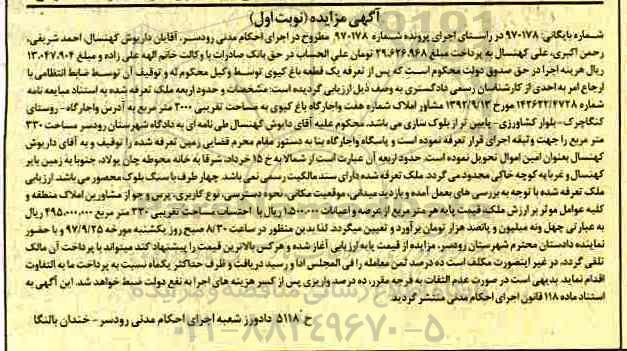 آگهی مزایده (نوبت اول)
شماره بایگانی: ۹۷۰۱۷۸ در راستای اجرای پرونده شماره ۹۷۰۱۷۸ مطروح در اجرای احکام مدنی رودسر، آقایان داریوش کهنسال، احمد شریفی،
رحمن اکبری، علی کهنسال به پرداخت مبلغ ۲۹.۶۲۶.۹۶۸ تومان علی الحساب در حق بانک صادرات با وکالت خانم الهه علی زاده و مبلغ ۱۳.۰۴۷.۹۰۴
ریال هزینه اجرا در حق صندوق دولت محکوم است که پس از تعرفه یک قطعه باغ کیوی توسط وکیل محکوم له و توقیف آن توسط ضابط انتظامی با
ارجاع امر به احدی از کارشناسان رسمی دادگستری به وصف ذیل ارزیابی گردیده است: مشخصات و حدود اربعه ملک تعرفه شده به استناد مبایعه نامه
شماره ۱۴۲۶۲۲/۴۷۲۸ مورخ ۱۳۹۲/۹/۱۳ مشاور املاک شماره هفت واجارگاه باغ کیوی به مساحت تقریبی ۲۰۰۰ متر مربع به آدرس واجارگاه- روستای
کنگاچرک- بلوار کشاورزی- پایین تر از بلوک سازی می باشد. محکوم علیه آقای داریوش کهنسال طی نامه ای به دادگاه شهرستان رودسر مساحت ۳۳۰
متر مربع را جهت وثیقه اجرای قرار تعرفه نموده است و پاسگاه واجارگاه بنا به دستور مقام محترم قضایی زمین تعرفه شده را توقیف و به آقای داریوش
کهنسال بعنوان امین اموال تحویل نموده است. حدود اربعه آن عبارت است از شمالا به خ ۱۵ خرداد، شرقا به خانه محوطه چان پولاد، جنوبا به زمین بایر
کهنسال و غربا به کوچه خاکی محدود می گردد. ملک تعرفه شده دارای سند مالکیت رسمی نمی باشد. چهار طرف با سنگ بلوک محصور می باشد. ارزیابی
ملک تعرفه شده با توجه به بررسی های بعمل آمده و بازدید میدانی، موقعیت مکانی، نحوه دسترسی، نوع کاربری، پرس و جو از مشاورین املاک منطقه و
کلیه عوامل موثر بر ارزش ملک، قیمت پایه هر متر مربع از عرصه و اعیانات ۱.۵۰۰.۰۰۰ ریال با احتساب مساحت تقریبی ۳۳۰ متر مربع ۴۹۵.۰۰۰.۰۰۰ ریال
به عبارتی چهل ونه میلیون و پانصد هزار تومان برآورد و تعیین میگردد. لذا بدین منظور در ساعت ۸/۳۰ صبح روز یکشنبه مورخه ۹۷/۹/۲۵ و با حضور
نماینده دادستان محترم شهرستان رودسر، مزایده از قیمت پایه ارزیابی آغاز شده و هرکس بالاترین قیمت را پیشنهاد کند میتواند با پرداخت آن مالک
تلقی گردد، در غیر اینصورت مکلف است ده درصد ثمن معامله را فی المجلس ادا و رسید دریافت و ظرف حداکثر یکماه نسبت به پرداخت ما به التفاوت
اقدام نماید. بدیهی است در صورت عدم التفات به قرجه مقرر، ده درصد واریزی پس از کسر هزینه های اجرا به نفع دولت ضبط خواهد شد. این آگهی به
استناد ماده ۱۱۸ قانون اجرای احکام مدنی منتشر گردید.
ح ۵۱۱۸ دادورز شعبه اجرای احکام مدنی رودسر- خندان بالنگا
۰۲۱-۸۸۳۴۹۶۷۰-۵